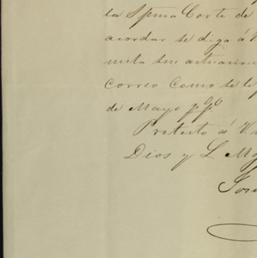 la Spma Corte de
acordar se diga á V
mita sus actuacion
correo como se le p
de Mayo ppdo
Protesto á V
Dios y L. Mé
José